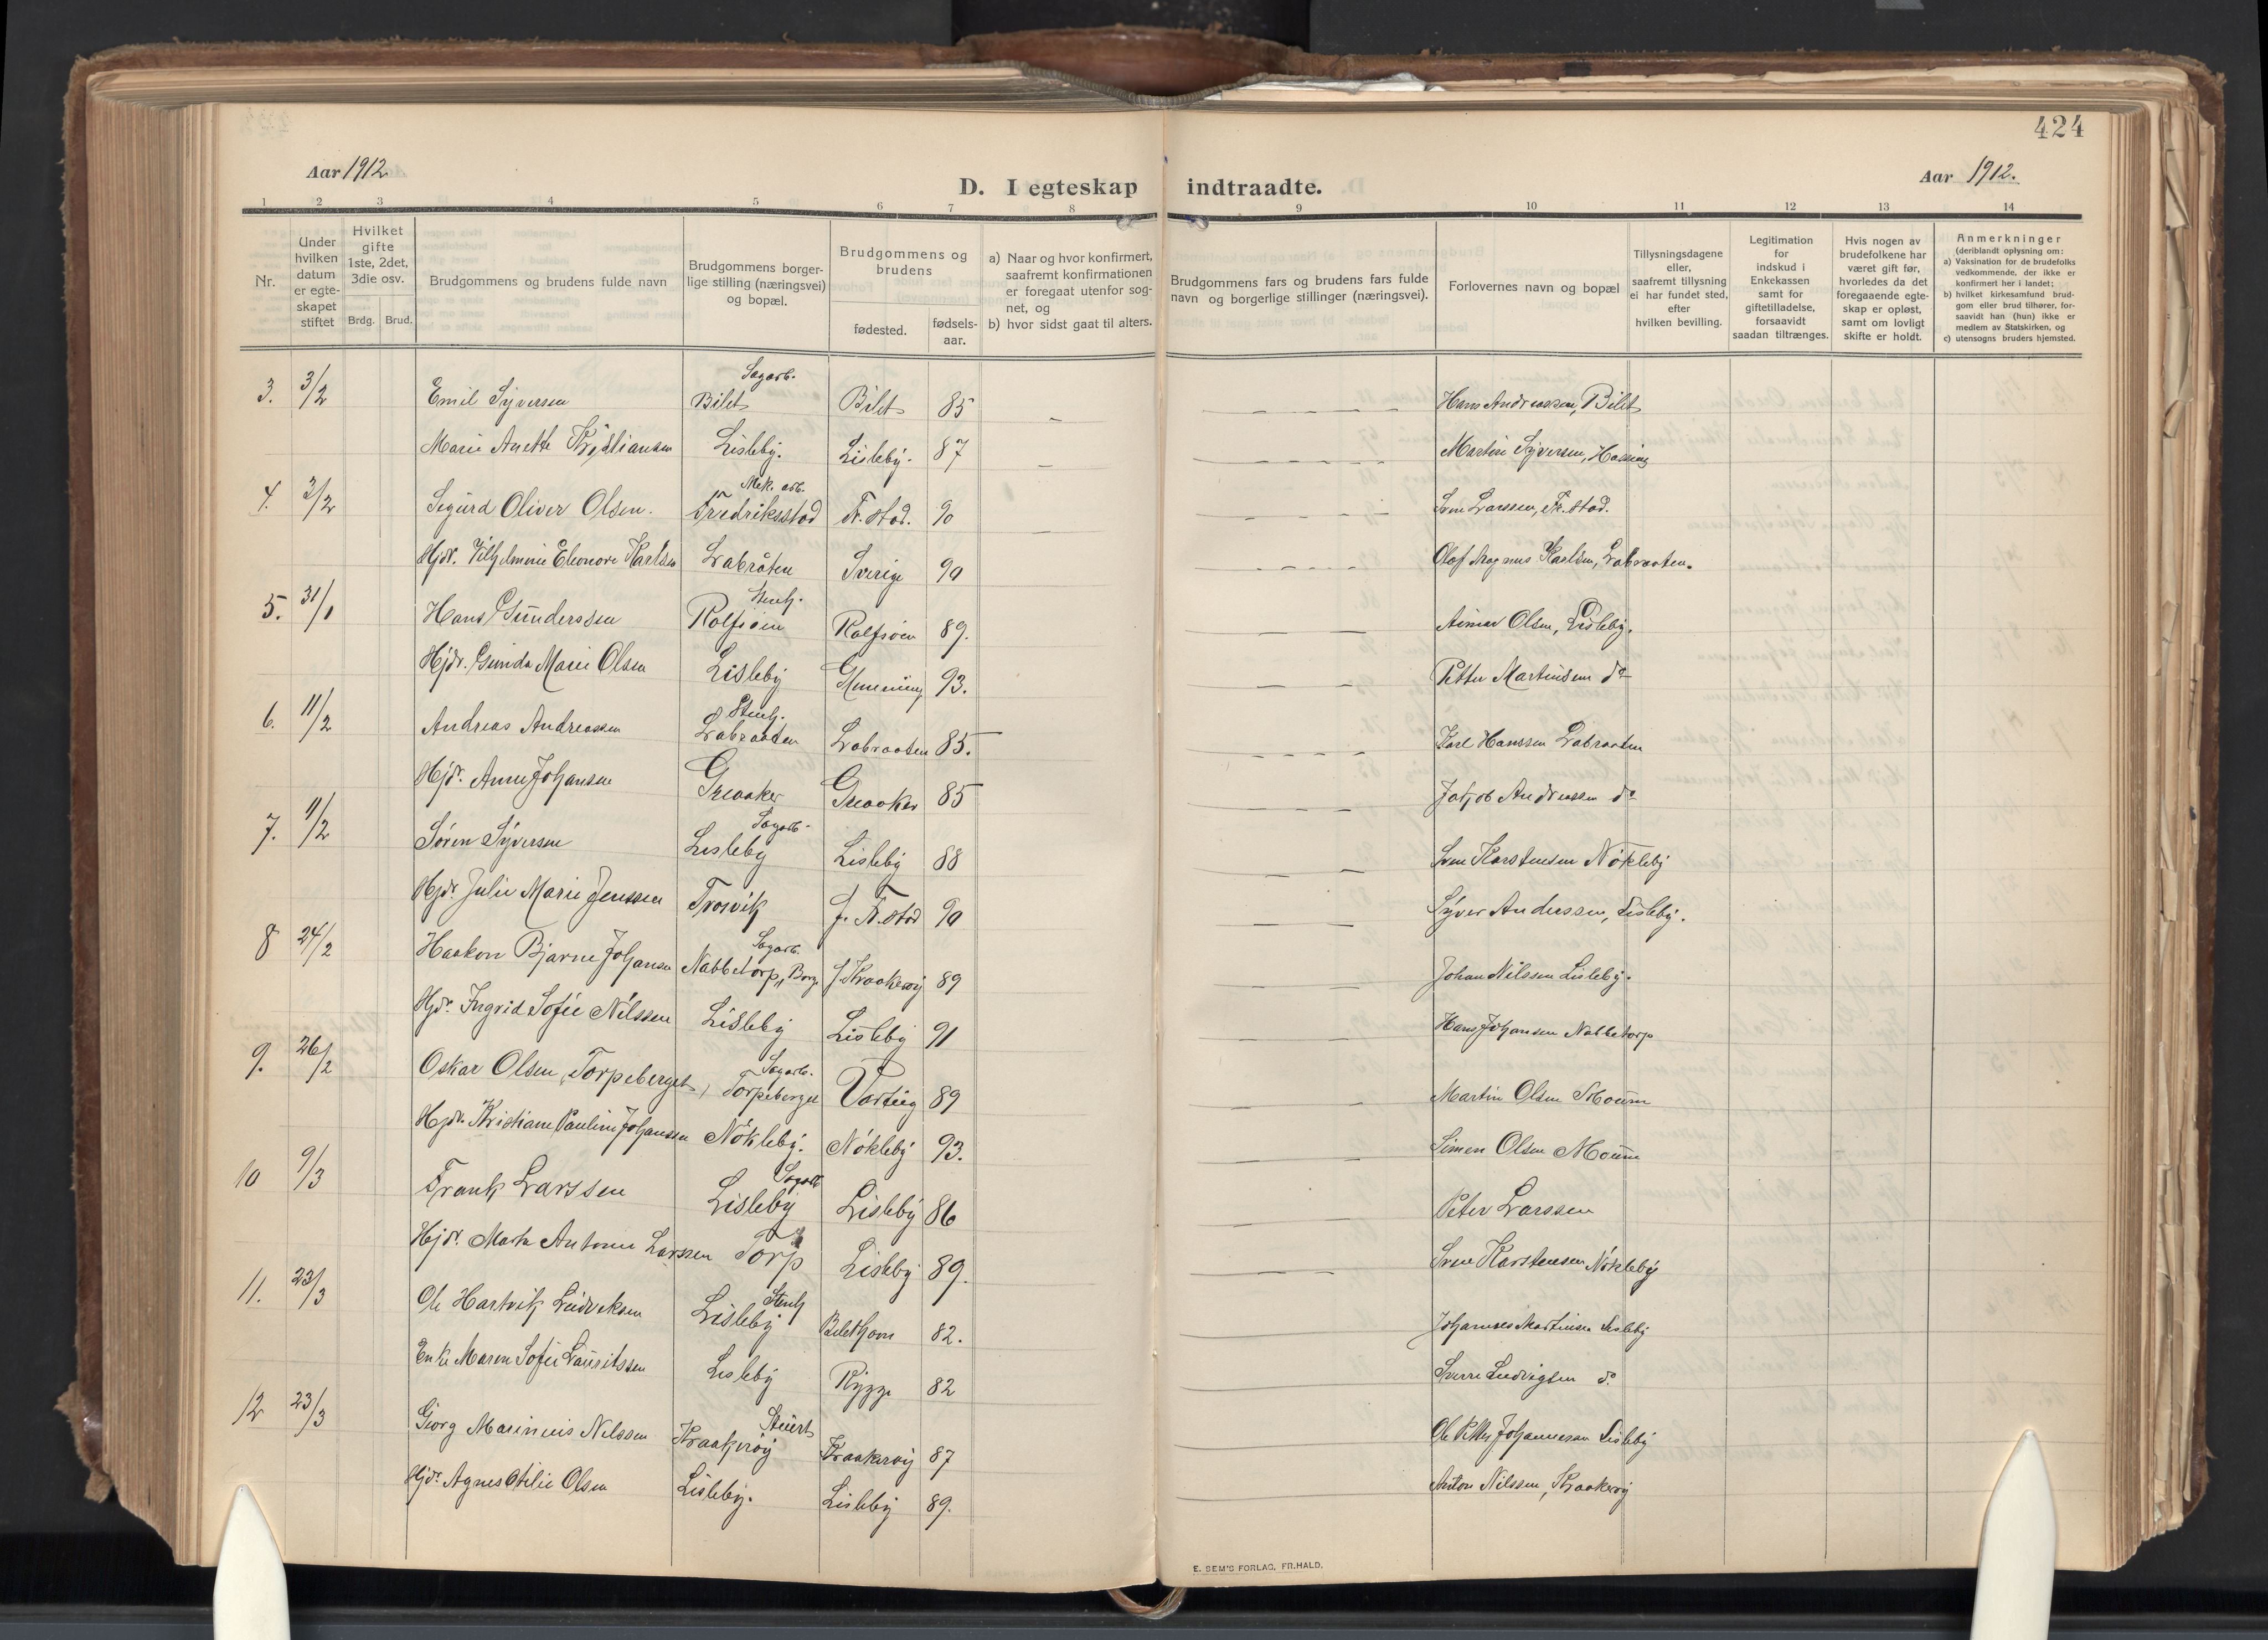 424
Aar 1912
D. I egteskap indtraadte.
Aar 1912.
1 2 3 4 5 6 7 8 9 10 11 12 13 14
Nr.
Under hvilken datum er egteskapet stiftet
Hvilket gifte 1ste, 2det, 3die osv.
Brdg. Brud.
Brudgommens og brudens fulde navn
Brudgommens borgerlige stilling (næringsvei) og bopæl.
Brudgommens og brudens
fødested.
fødselsaar.
a) Naar og hvor konfirmert, saafremt konfirmationen er foregaat utenfor sognet, og
b) hvor sidst gaat til alters.
Brudgommens fars og brudens fars fulde navn og borgerlige stillinger (næringsvei).
Forlovernes navn og bopæl
Tillysningsdagene eller, saafremt tillysning ei har fundet sted, efter hvilken bevilling.
Legitimation for indskud i Enkekassen samt for giftetilladelse, forsaavidt saadan tiltrænges.
Hvis nogen av brudefolkene har været gift før, hvorledes da det foregaaende egteskap er opløst, samt om lovligt skifte er holdt.
Anmerkninger
(deriblandt oplysning om:
a) Vaksination for de brudefolks vedkommende, der ikke er konfirmert her i landet;
b) hvilket kirkesamfund brudgom eller brud tilhører, forsaavidt han (hun) ikke er medlem av Statskirken, og
c) utensogns bruders hjemsted.
3. 3/2 Emil Syversen Sagarb. Bilet Bilet 85 Hans Andreassen, Bilet
Marie Anette Kristiansen Lisleby. Lisleby. 87 Martin Syversen,
4. 3/2 Sigurd Oliver Olsen. Mek. arb. Fredriksstad Fr.stad. 90 Sven Larssen, Fr.stad.
Hjdr. Vilhelmine Eleonore Karlsen Labråten Sverige 90 Olaf Magnus Karlsen, Labraaten.
5. 31/1 Hans Gunderssen Stenh. Rolfsøen Rolfsøen 89. Olsen, Lisleby.
Hjdr. Gunda Marie Olsen Lisleby 93. Petter Martinsen do
6. 11/2 Andreas Andreassen Stenh. Labraaten Labraaten 85. Karl Hanssen Labraaten
Hjdr. Anne Johansen Greaaker Greaaker 85 Jakob Andreassen do
7. 11/2 Søren Syversen Sagarb. Lisleby Lisleby 88 Sven Karstensen Nøkleby
Hjdr. Julie Marie Jenssen Trosvik f. Fr.stad 90 Syver Anderssen, Lisleby.
8 24/2 Haakon Bjarne Johansen Sagarb. Nabbetorp, Borge f. Kraakerøy 89 Johan Nilssen Lisleby.
Hjdr. Ingrid Sofie Nilssen Lisleby Lisleby 91 Hans Johansen Nabbetorp
9. 26/2 Oskar Olsen, Torpeberget, Sagarb. Torpeberget Varteig 89 Martin Olsen Moum
Hjdr. Kristiane Pauline Johanssen Nøkleby. Nøkleby 93. Simen Olsen Moum
10 9/3 Frank Larssen Sagarb. Lisleby Lisleby 86 Peter Larssen
Hjdr. Marta Antonie Larssen Torp Lisleby 89. Sven Karstensen Nøkleby
11. 23/3 Ole Hartvik Ludviksen Stenh Lisleby Bilethavn 82. Johannes Martinsen Lisleby
Enke Maren Sofie Lauritssen Lisleby Rygge 82 Sverre Ludvigsen do
12 23/3 Georg Marinius Nilssen Stuert Kraakerøy Kraakerøy 87 Ole Petter Johannessen Lisleby
Hjdr. Agnes Otilie Olsen Lisleby. Lisleby 89. Anton Nilssen, Kraakerøy
E. SEM'S FORLAG, FR.HALD.